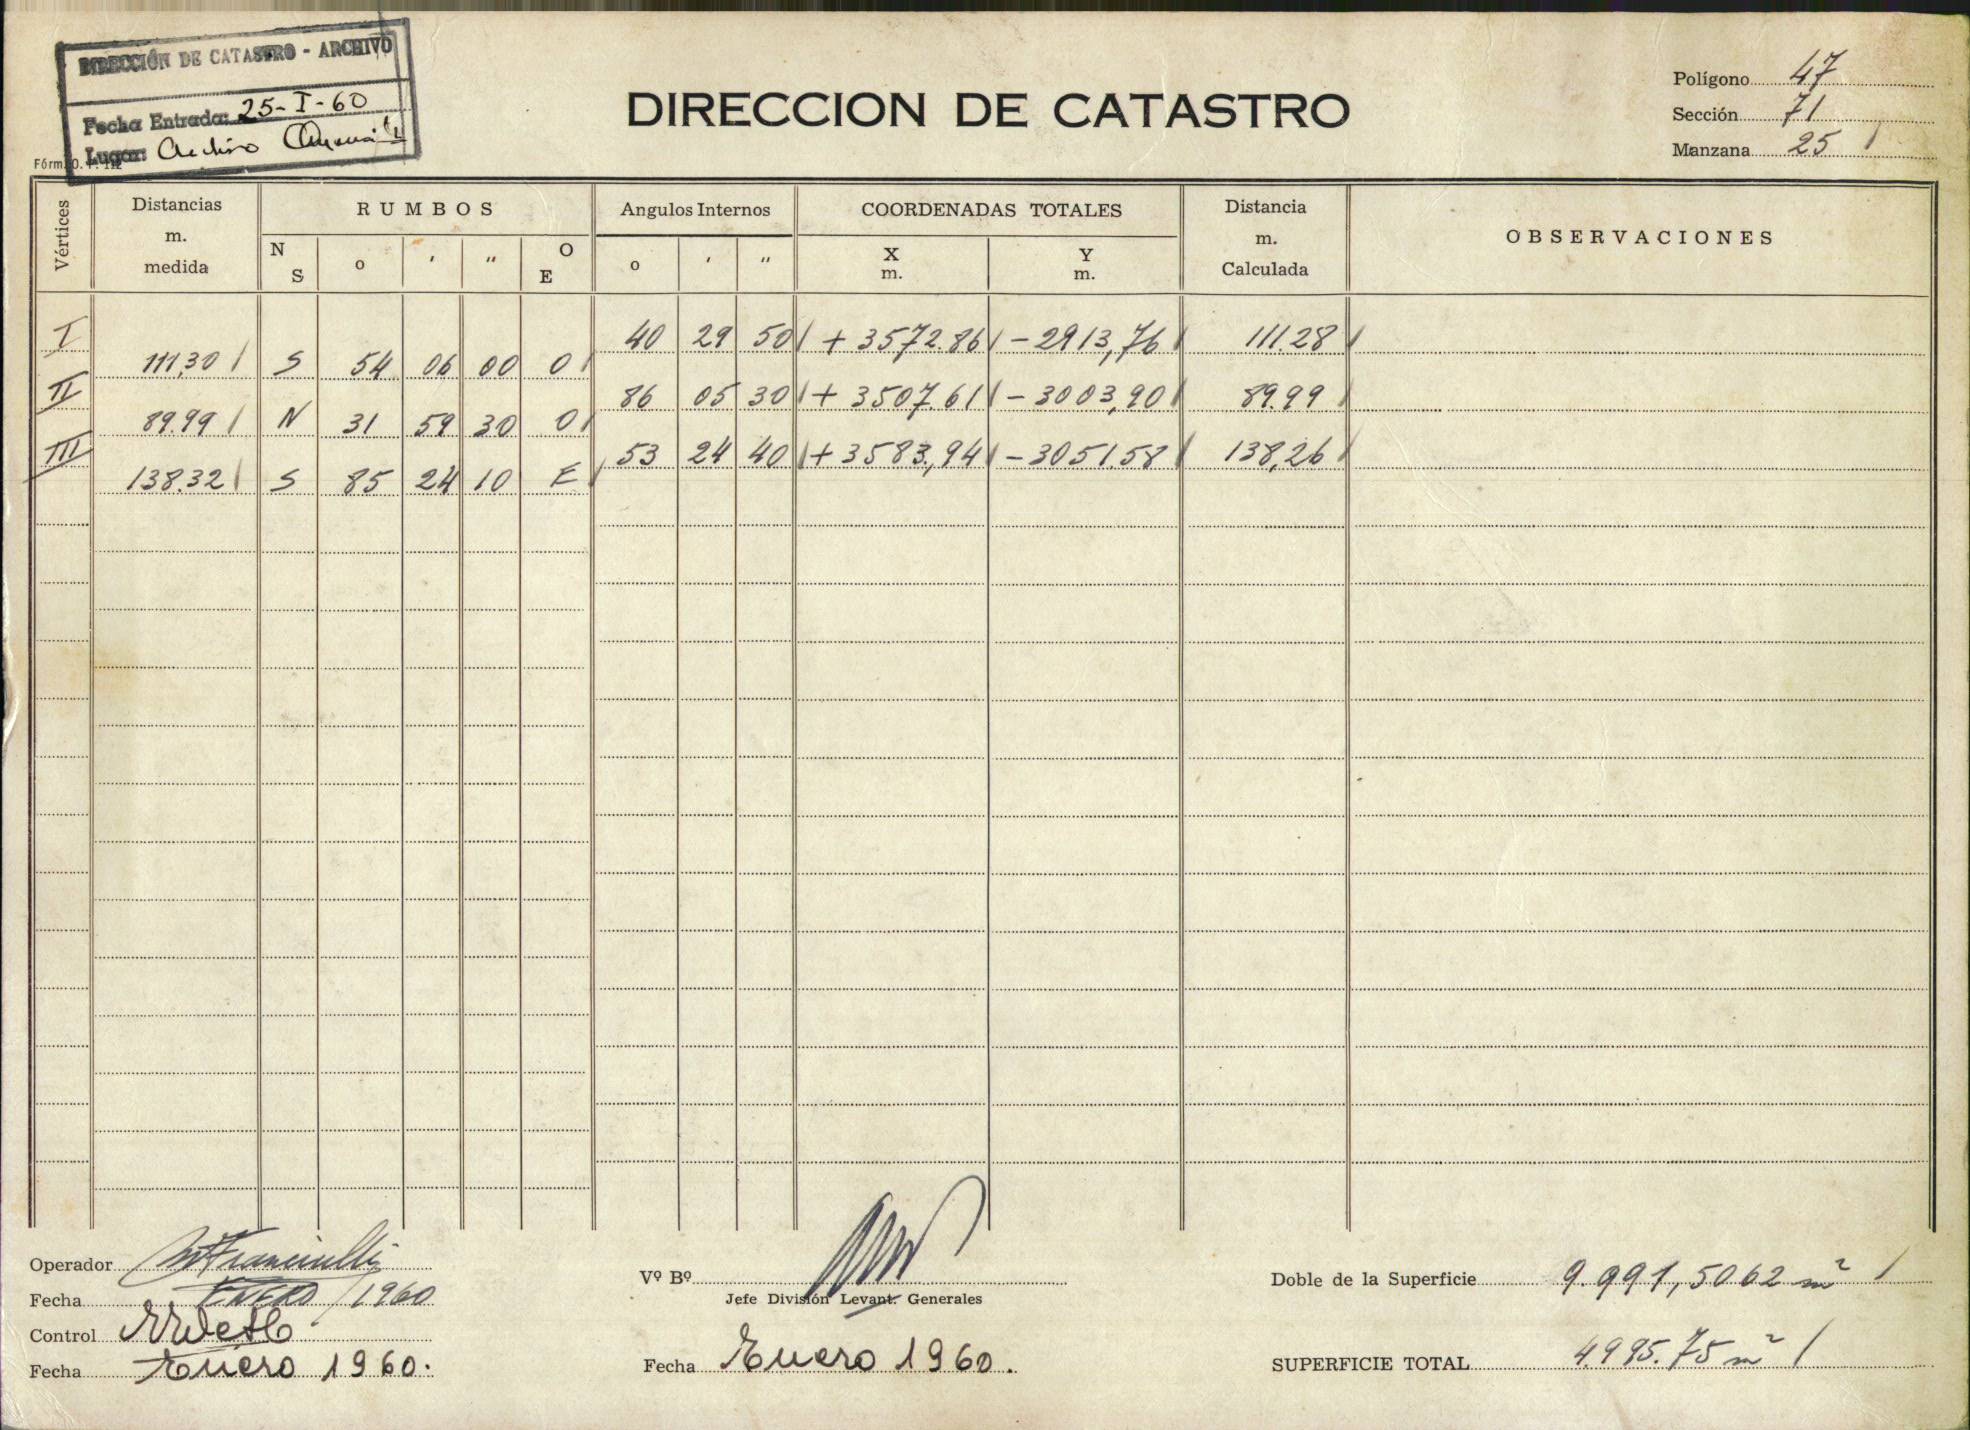 DIRECCIÓN DE CATASTRO - ARCHIVO
Fecha Entrada: 25-I-60
Lugar: Archivo
Fórm. O. P. 112
DIRECCION DE CATASTRO
Polígono 47
Sección 71
Manzana 25
Vértices Distancias m. medida RUMBOS Angulos Internos COORDENADAS TOTALES Distancia m. Calculada OBSERVACIONES
N S o ' " O E o ' " X m. Y m.
I 40 29 50 + 3572.86 - 2913,76 111.28
111,30 S 54 06 00 O
II 86 05 30 + 3507.61 - 3003,90 89.99
89.99 N 31 59 30 O
III 53 24 40 + 3583,94 - 3051.58 138,26
138.32 S 85 24 10 E
Operador
Fecha ENERO / 1960
Control
Fecha Enero 1960.
Vº Bº
Jefe División Levant. Generales
Fecha Enero 1960.
Doble de la Superficie 9.991,5062 m²
SUPERFICIE TOTAL 4.995.75 m²